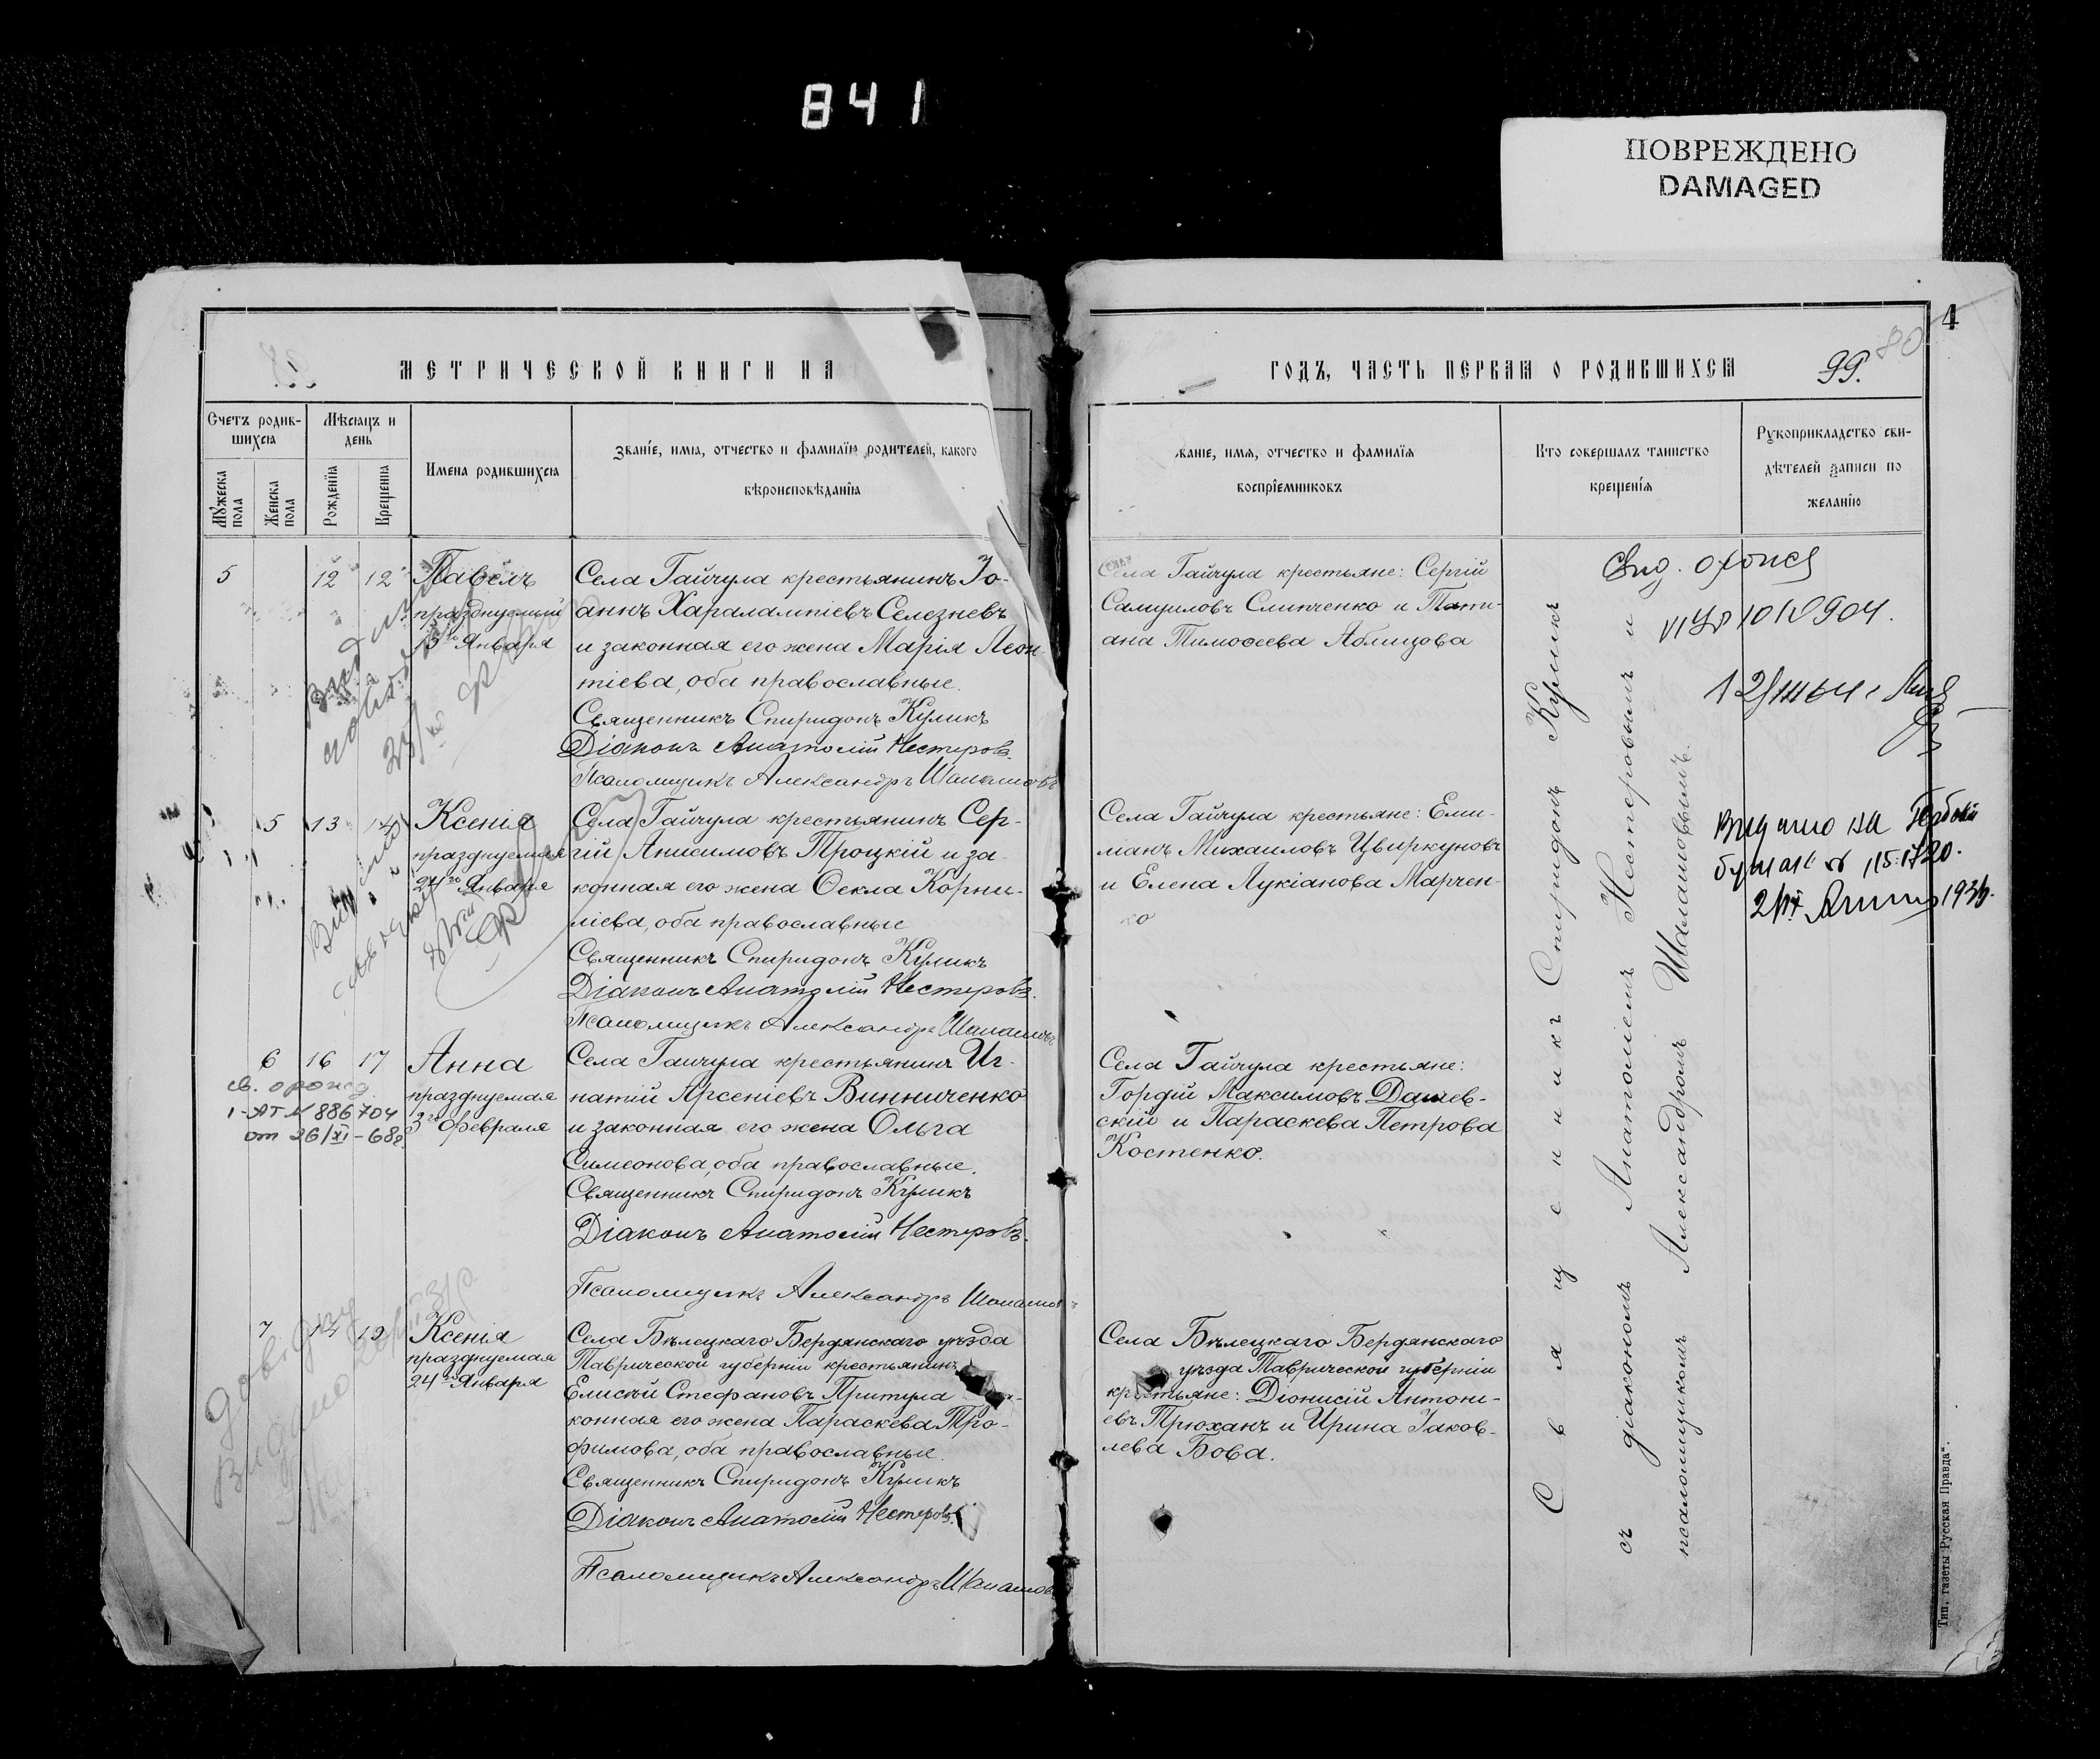 841
ПОВРЕЖДЕНО
DAMAGED
4
МЕТРИЧЕСКОЙ КНИГИ НА
ГОДЪ, ЧАСТЬ ПЕРВАЯ О РОДИВШИХСЯ
99.
80
Счетъ родив-
шихся
Мѣсяцъ и
день
Мужеска пола
Женска пола
Рожденія
Крещенія
Имена родившихся
Званіе, имя, отчество и фамилію родителей, какого
вѣроисповѣданія
званіе, имя, отчество и фамилія
воспріемниковъ
Кто совершалъ таинство
крещенія
Рукоприкладство сви-
дѣтелей записи по
желанію
5 12 12 Павелъ
празднуемый
15го Января
Села Гайчула крестьянинъ Іо-
аннъ Харалампіевъ Селезневъ
и законная его жена Марія Леон
тіева, оба православные.
Священникъ Спиридонъ Куликъ
Діаконъ Анатолій Нестеровъ.
Псаломщикъ Александръ Шаламовъ
Села Гайчула крестьяне: Сергій
Самуиловъ Слипченко и Тати-
ана Тимоѳеева Аблицова
5 13 14 Ксенія
празднуемая
24го Января
Села Гайчула крестьянинъ Сер-
гій Анисимовъ Троцкій и за
конная его жена Ѳекла Корни-
ліева, оба православные
Священникъ Спиридонъ Куликъ
Діаконъ Анатолій Нестеровъ.
Псаломщикъ Александръ Шаламовъ
Села Гайчула крестьяне: Еми-
ліанъ Михаиловъ Цвиркуновъ
и Елена Лукіанова Марчен-
ко
6 16 17 Анна
празднуемая
3го февраля
св. о рожд
I-АП № 886704
от 26/XI-68г
Села Гайчула крестьянинъ Иг-
натій Арсеніевъ Винниченко
и законная его жена Ольга
Симеонова, оба православные.
Священникъ Спиридонъ Куликъ
Діаконъ Анатолій Нестеровъ.
Псаломщикъ Александръ Шаламовъ
Села Гайчула крестьяне:
Гордій Максимовъ Дашев-
скій и Параскева Петрова
Костенко.
7 19 Ксенія
празднуемая
24го Января
Села Бѣлецкаго Бердянскаго уѣзда
Таврической губерніи крестьянинъ
Елисѣй Стефановъ Притула
конная его жена Параскева Тро-
фимова, оба православные.
Священникъ Спиридонъ Куликъ
Діаконъ Анатолій Нестеровъ.
Псаломщикъ Александръ Шаламовъ
Села Бѣлецкаго Бердянскаго
уѣзда Таврической губерніи
крестьяне: Діонисій Антони-
евъ Трюханъ и Ирина Іаков-
лева Бова.
Священникъ Спиридонъ Куликъ
съ діакономъ Анатоліемъ Нестеровымъ и
псаломщикомъ Александромъ Шаламовымъ.
Видано на Гербовій
Тип. газеты „Русская Правда“.